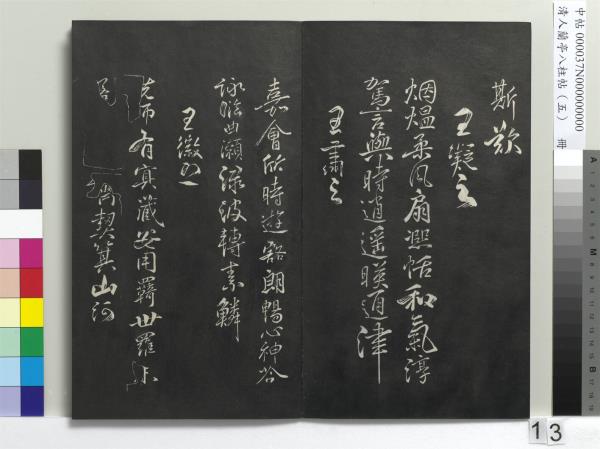 中帖 000037N000000000
清人蘭亭八柱帖（五） 冊
斯歎
王凝之
烟熅柔風扇熙恬和氣淳
駕言興時遊逍遙暎通津
王肅之
嘉會欣時遊豁朗暢心神吟
詠曲水瀨淥波轉素鱗
王徽之
先師有冥藏安用羈世羅未
若
保沖真齊契箕山阿
13